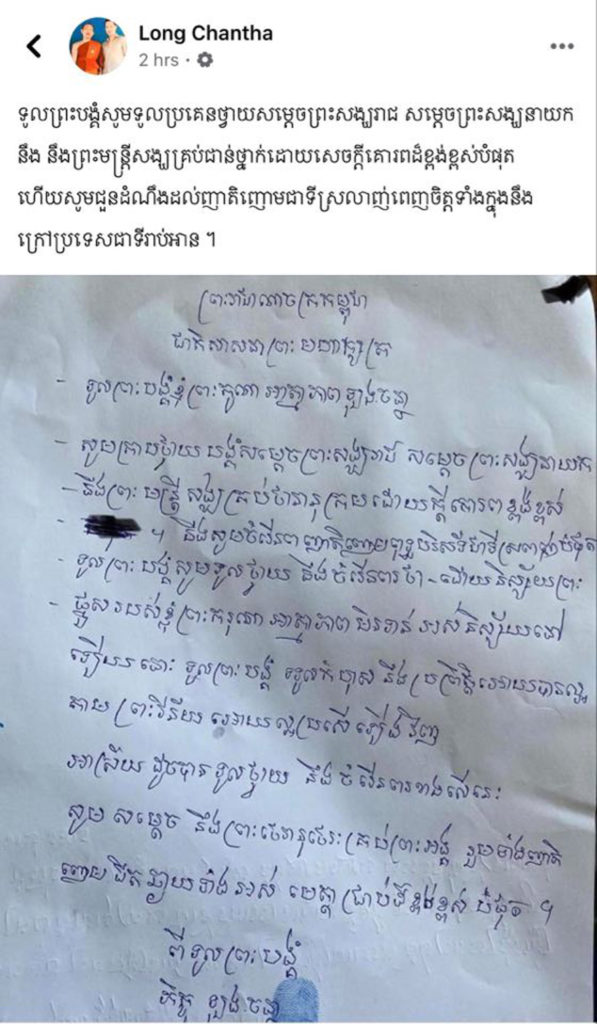 Long Chantha
2 hrs
ទូលព្រះបង្គំសូមទូលប្រគេនថ្វាយសម្តេចព្រះសង្ឃរាជ សម្តេចព្រះសង្ឃនាយក
នឹង នឹងព្រះមន្ត្រីសង្ឃគ្រប់ជាន់ថ្នាក់ដោយសេចក្តីគោរពដ៏ខ្ពង់ខ្ពស់បំផុត
ហើយសូមជួនដំណឹងដល់ញាតិញោមជាទីស្រលាញ់ពេញចិត្តទាំងក្នុងនឹង
ក្រៅប្រទេសជាទីរាប់អាន ។
ព្រះរាជាណាចក្រកម្ពុជា
ជាតិ សាសនា ព្រះមហាក្សត្រ
- ទូលព្រះបង្គំខ្ញុំព្រះករុណា អាត្មាភាព ឡុង ចន្ថា
- សូមក្រាបថ្វាយបង្គំសម្តេចព្រះសង្ឃរាជ សម្តេចព្រះសង្ឃនាយក
- នឹងព្រះមន្ត្រីសង្ឃគ្រប់ឋានានុក្រមដោយក្តីគោរពខ្ពង់ខ្ពស់
- ។ នឹងសូមចំរើនពរញាតិញោមពុទ្ធបរិស័ទជាទីស្រលាញ់បំផុត
- ទូលព្រះបង្គំសូមទូលថ្វាយ នឹងចំរើនពរថា - ដោយនិស្ស័យព្រះ
- ផ្នួសរបស់ខ្ញុំព្រះករុណា អាត្មាភាព មិនទាន់អស់និស្ស័យនៅ
ឡើយនោះ ទូលព្រះបង្គំ ទទួលកំហុស នឹងប្រព្រឹត្តិអោយបានល្អ
តាមព្រះវិន័យ អោយល្អប្រសើរឡើងវិញ
អាស្រ័យដូចបានទូលថ្វាយ នឹងចំរើនពរខាងលើនេះ
សូមសម្តេច នឹងព្រះថេរានុថេរៈគ្រប់ព្រះអង្គ រួមទាំងញាតិ
ញោមជិតឆ្ងាយទាំងអស់ មេត្តាជ្រាបដ៏ខ្ពង់ខ្ពស់បំផុត ។
ពីទូលព្រះបង្គំ
ភិក្ខុ ឡុង ចន្ថា